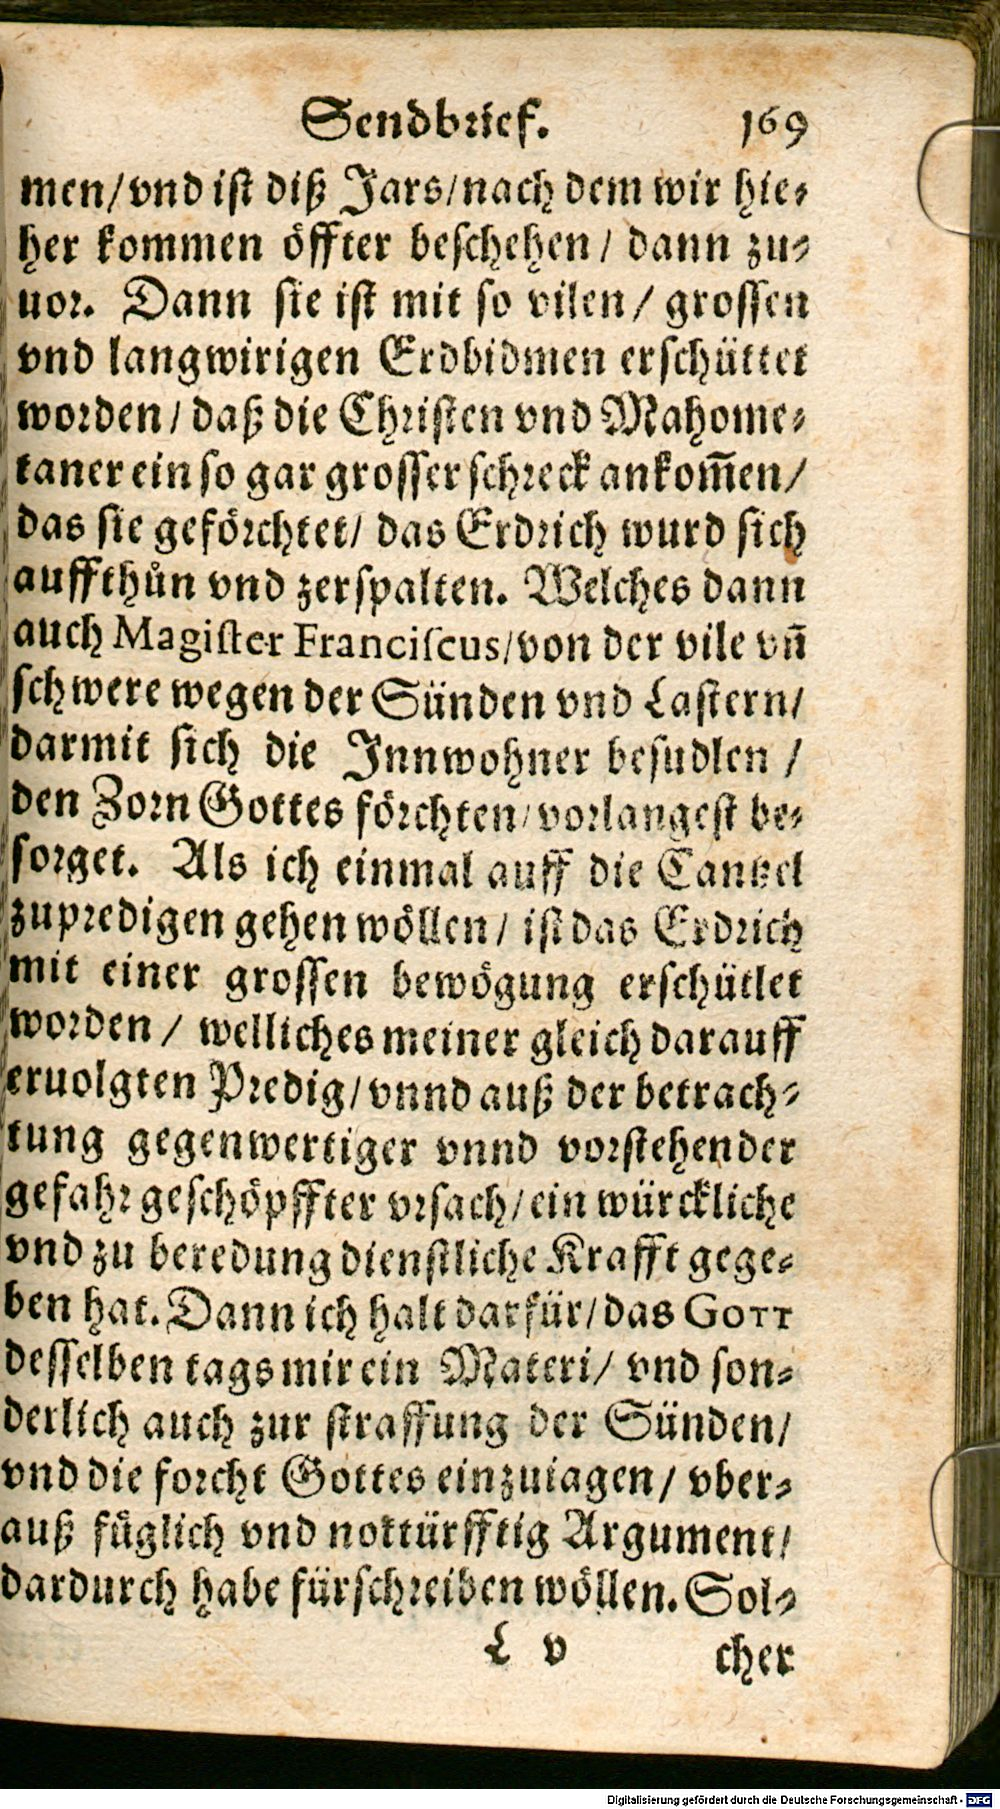 Sendbrief. 169
men/vnd ist diß Jars/nach dem wir hie-
her kommen öffter beschehen/ dann zu-
uor. Dann sie ist mit so vilen/ grossen
vnd langwirigen Erdbidmen erschüttet
worden/ daß die Christen vnd Mahome-
taner ein so gar grosser schreck ankom̃en/
das sie geförchtet/ das Erdrich wurd sich
auffthůn vnd zerspalten. Welches dann
auch Magister Franciscus/von der vile vñ
schwere wegen der Sünden vnd Lastern/
darmit sich die Innwohner besudlen /
den Zorn Gottes förchten/vorlangest be-
sorget. Als ich einmal auff die Cantzel
zupredigen gehen wöllen/ ist das Erdrich
mit einer grossen bewögung erschütlet
worden / welliches meiner gleich darauff
eruolgten Predig/vnnd auß der betrach-
tung gegenwertiger vnnd vorstehender
gefahr geschöpffter vrsach/ein würckliche
vnd zu beredung dienstliche Krafft gege-
ben hat. Dann ich halt darfür/das GOTT
desselben tags mir ein Materi/ vnd son-
derlich auch zur straffung der Sünden/
vnd die forcht Gottes einzuiagen/ vber-
auß füglich vnd nottürfftig Argument/
dardurch habe fürschreiben wöllen. Sol-
L v cher
Digitalisierung gefördert durch die Deutsche Forschungsgemeinschaft - DFG